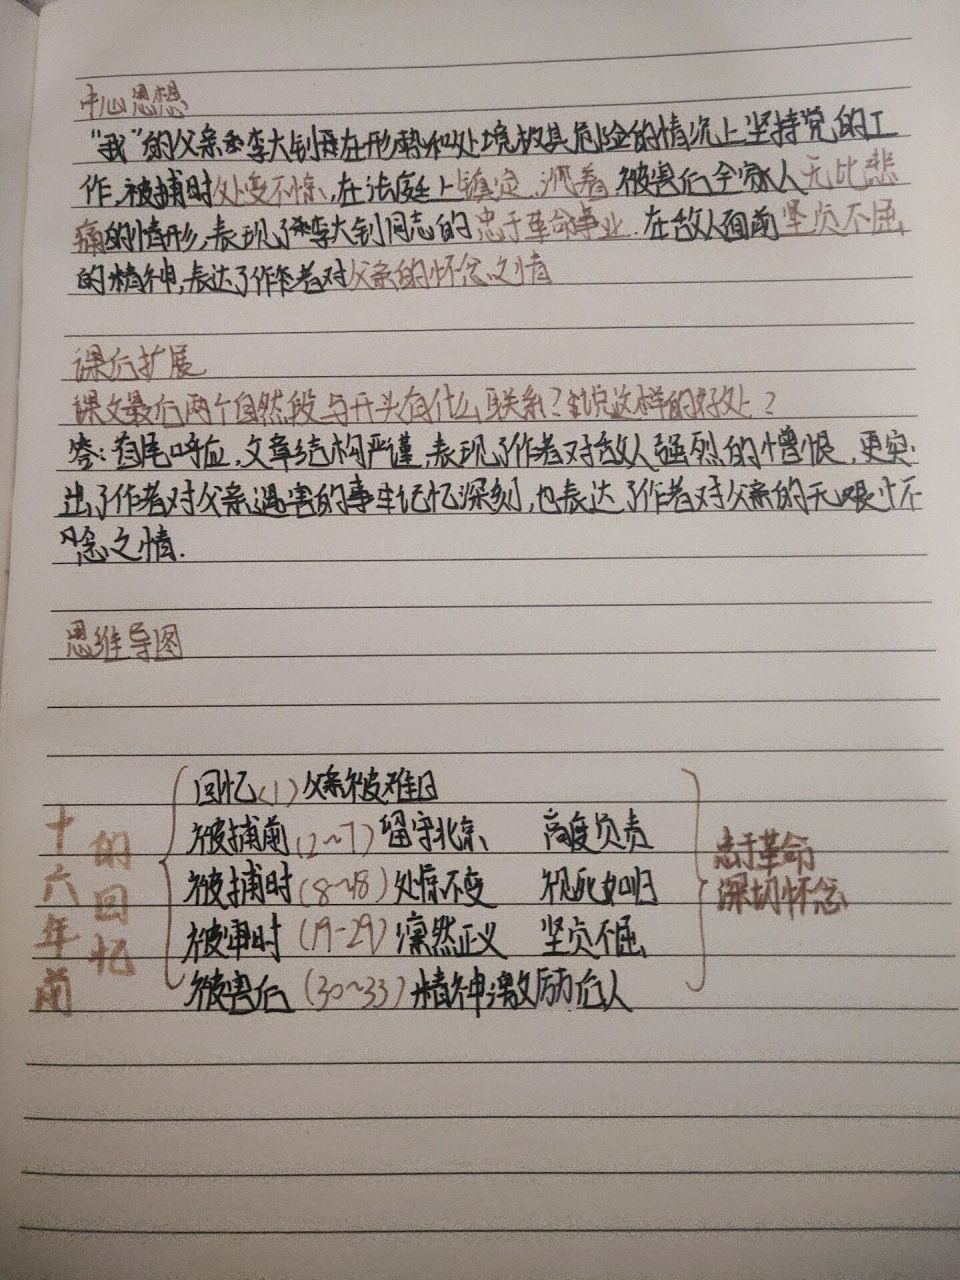 中心思想
"我"的父亲李大钊同在形势和处境极其危险的情况上坚持党的工
作,被捕时处变不惊,在法庭上镇定、沉着,被害后全家人无比悲
痛的情形,表现了李大钊同志的忠于革命事业.在敌人面前坚贞不屈
的精神,表达了作者对父亲的怀念之情
课后扩展
课文最后两个自然段与开头有什么联系?说这样的好处?
答:首尾呼应,文章结构严谨,表现了作者对敌人强烈的憎恨,更突
出了作者对父亲遇害的事记忆深刻,也表达了作者对父亲的无限怀
念之情.
思维导图
十六年前
的回忆
回忆(1)父亲被难日
被捕前(2~7)留守北京 高度负责
被捕时(8~18)处惊不变 视死如归
被审时(19-29)凛然正义 坚贞不屈
被害后(30~33)精神激励后人
忠于革命
深切怀念